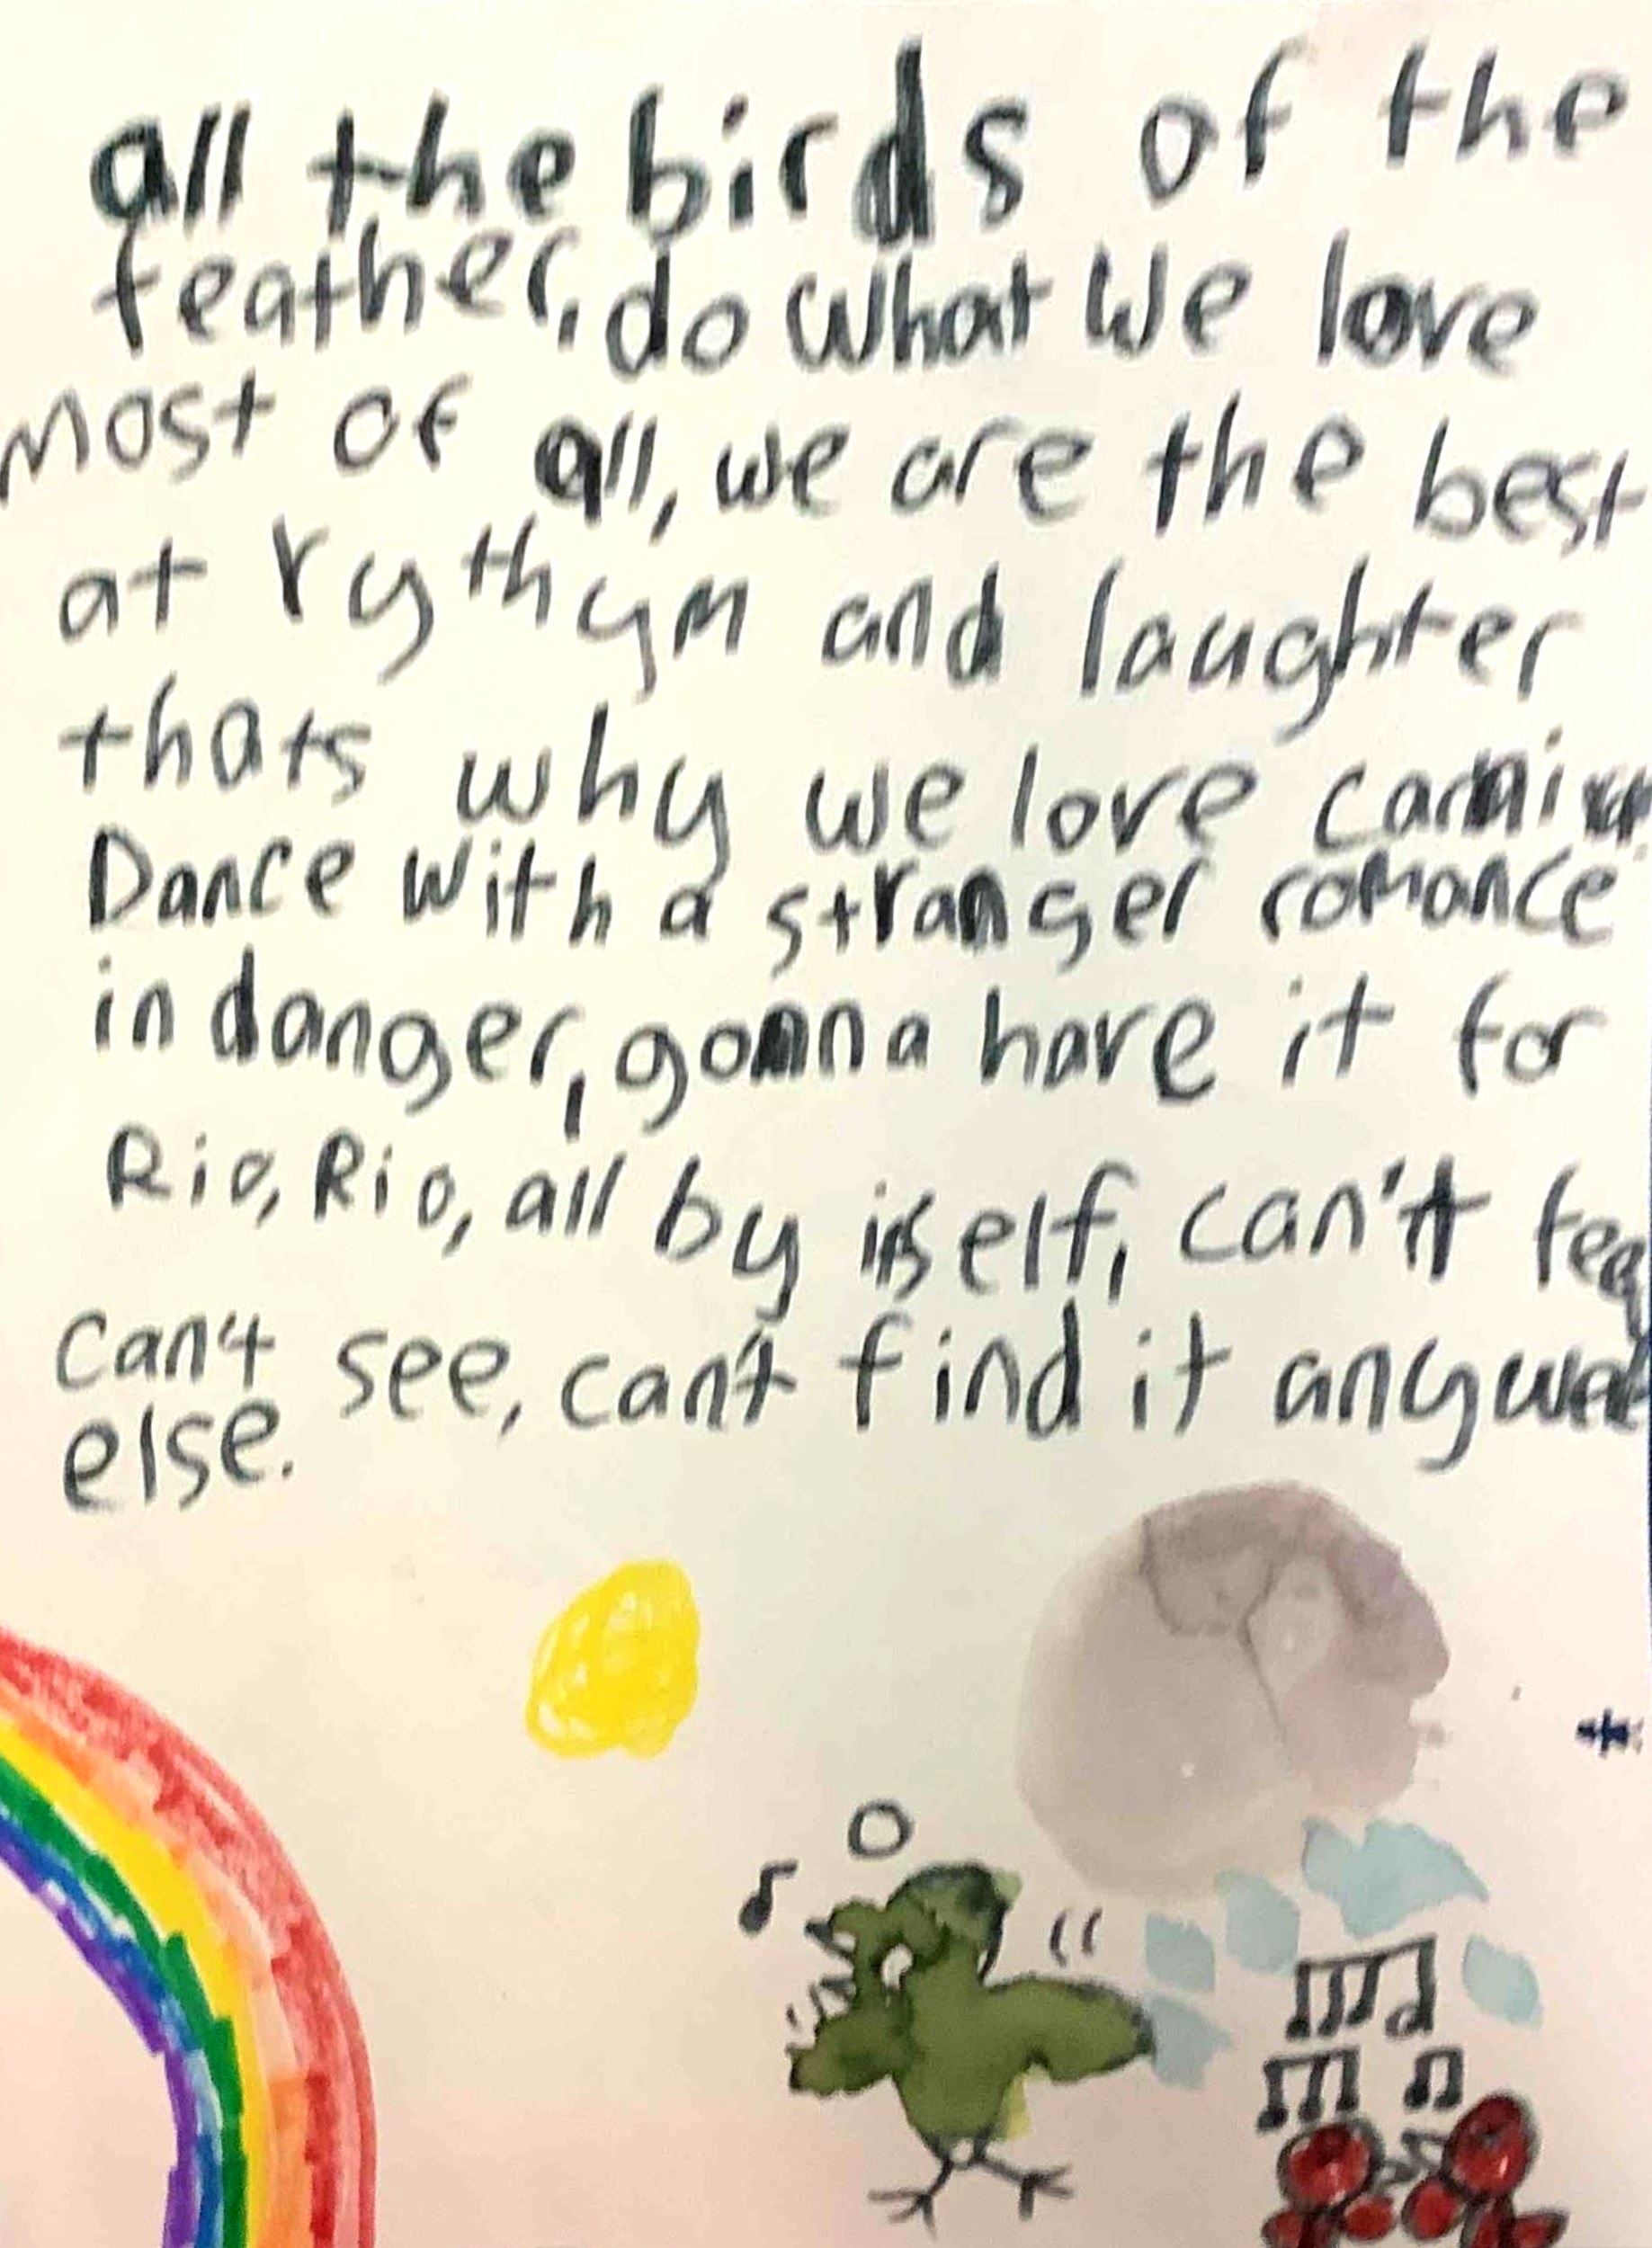 all the birds of the
feather, do what we love
most of all, we are the best
at rythym and laughter
thats why we love carniva
Dance with a stranger romance
in danger, gonna have it for
Rio, Rio, all by itself, can't fea
can't see, can't find it
else.